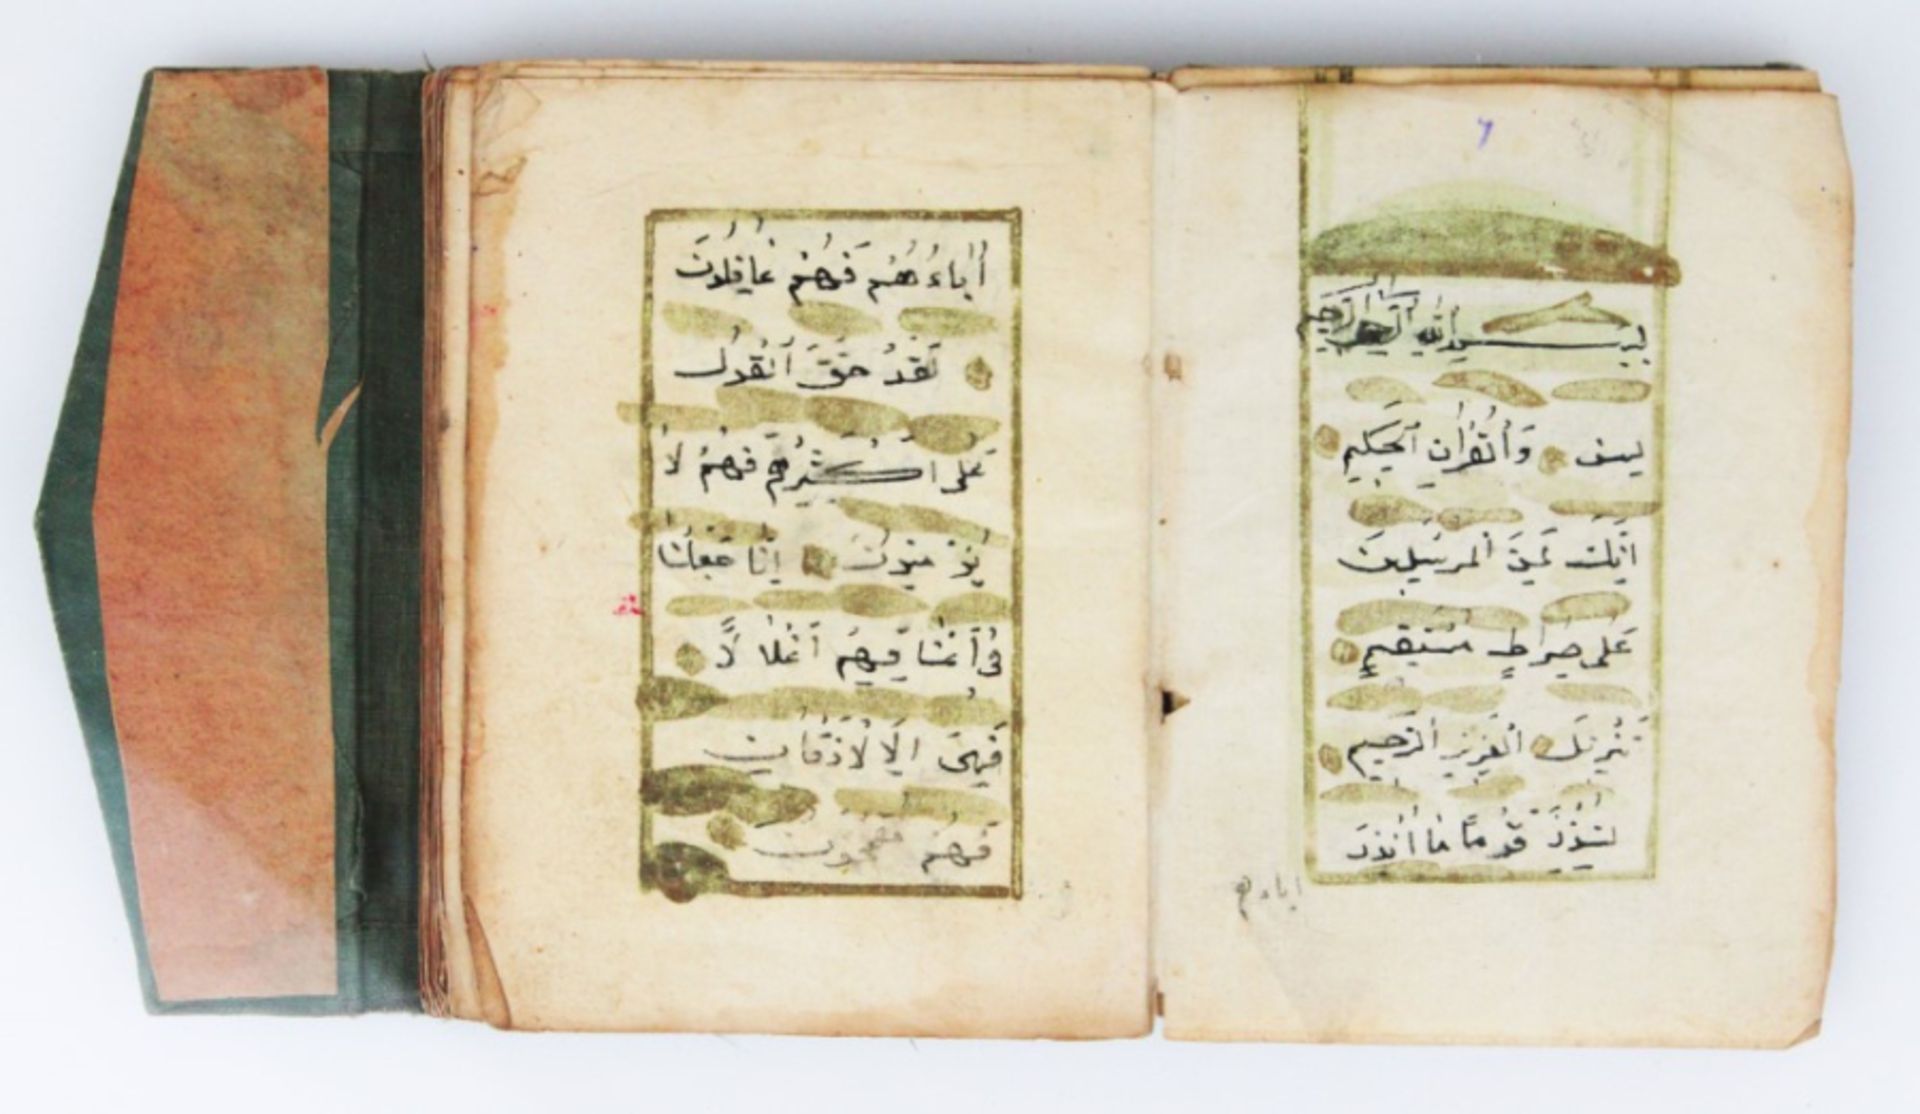 ٦
بسم الله الرحمن الرحيم
يس وَالْقُرْاٰنِ الْحَكِيمِ
اِنَّكَ لَمِنَ الْمُرْسَلِينَ
عَلٰى صِرَاطٍ مُسْتَقِيمٍ
تَنْزِيلَ الْعَزِيزِ الرَّحِيمِ
لِتُنْذِرَ قَوْمًا مَا اُنْذِرَ
اباءهم
اٰبَاءُهُمْ فَهُمْ غَافِلُونَ
لَقَدْ حَقَّ الْقَوْلُ
عَلٰى اَكْثَرِهِمْ فَهُمْ لَا
يُؤْمِنُونَ اِنَّا جَعَلْنَا
فِى اَعْنَاقِهِمْ اَغْلَالًا
فَهِىَ اِلَى الْاَذْقَانِ
فَهُمْ مُقْمَحُونَ